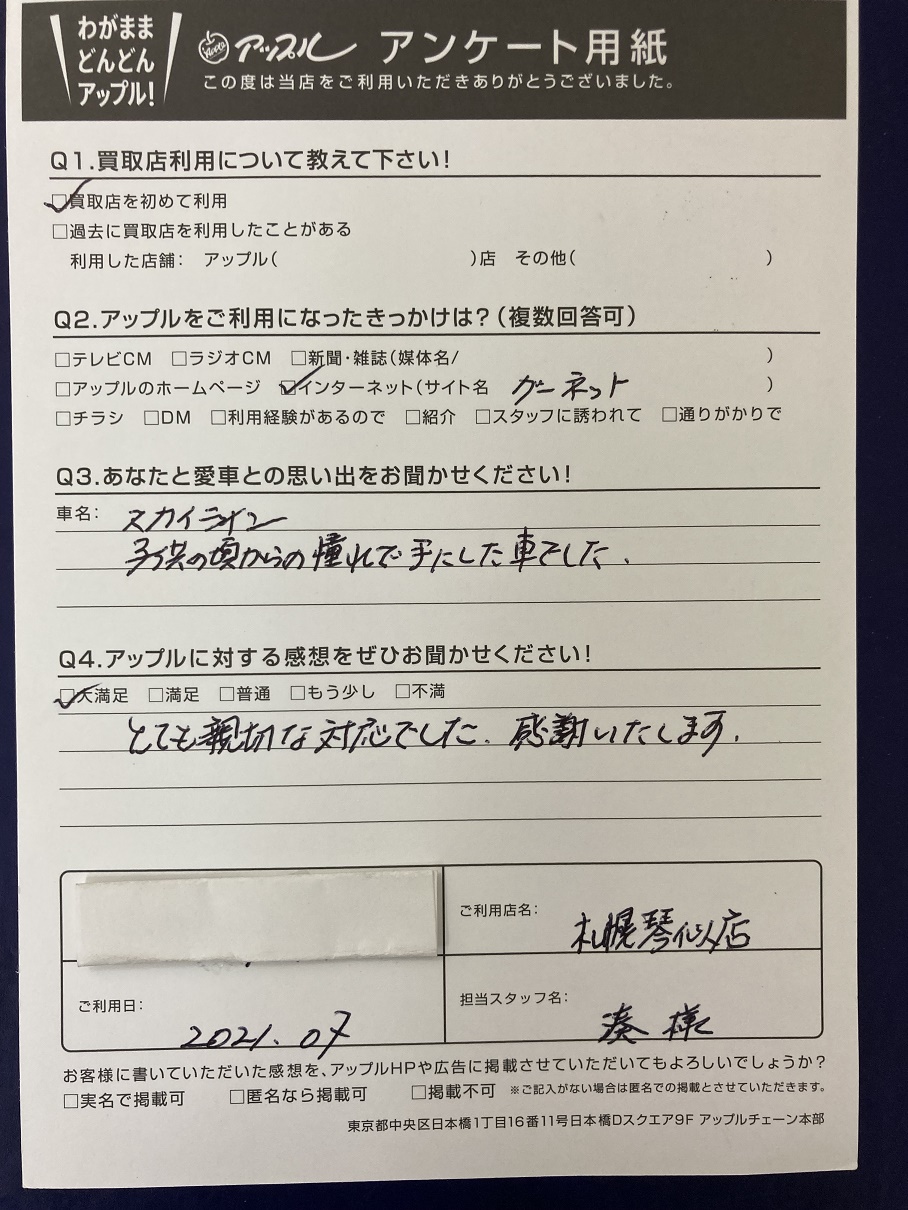 わがまま
どんどん
アップル!
アップル アンケート用紙
この度は当店をご利用いただきありがとうございました。
Q1.買取店利用について教えて下さい!
☑買取店を初めて利用
□過去に買取店を利用したことがある
利用した店舗: アップル( )店 その他( )
Q2.アップルをご利用になったきっかけは?(複数回答可)
□テレビCM □ラジオCM □新聞・雑誌(媒体名/ )
□アップルのホームページ ☑インターネット(サイト名 ガーネット )
□チラシ □DM □利用経験があるので □紹介 □スタッフに誘われて □通りがかりで
Q3.あなたと愛車との思い出をお聞かせください!
車名: スカイライン
子供の頃からの憧れで手にした車でした.
Q4.アップルに対する感想をぜひお聞かせください!
☑大満足 □満足 □普通 □もう少し □不満
とても親切な対応でした、感謝いたします.
ご利用店名: 札幌琴似店
ご利用日: 2021.07
担当スタッフ名: 湊 様
お客様に書いていただいた感想を、アップルHPや広告に掲載させていただいてもよろしいでしょうか?
□実名で掲載可 □匿名なら掲載可 □掲載不可 ※ご記入がない場合は匿名での掲載とさせていただきます。
東京都中央区日本橋1丁目16番11号日本橋Dスクエア9F アップルチェーン本部